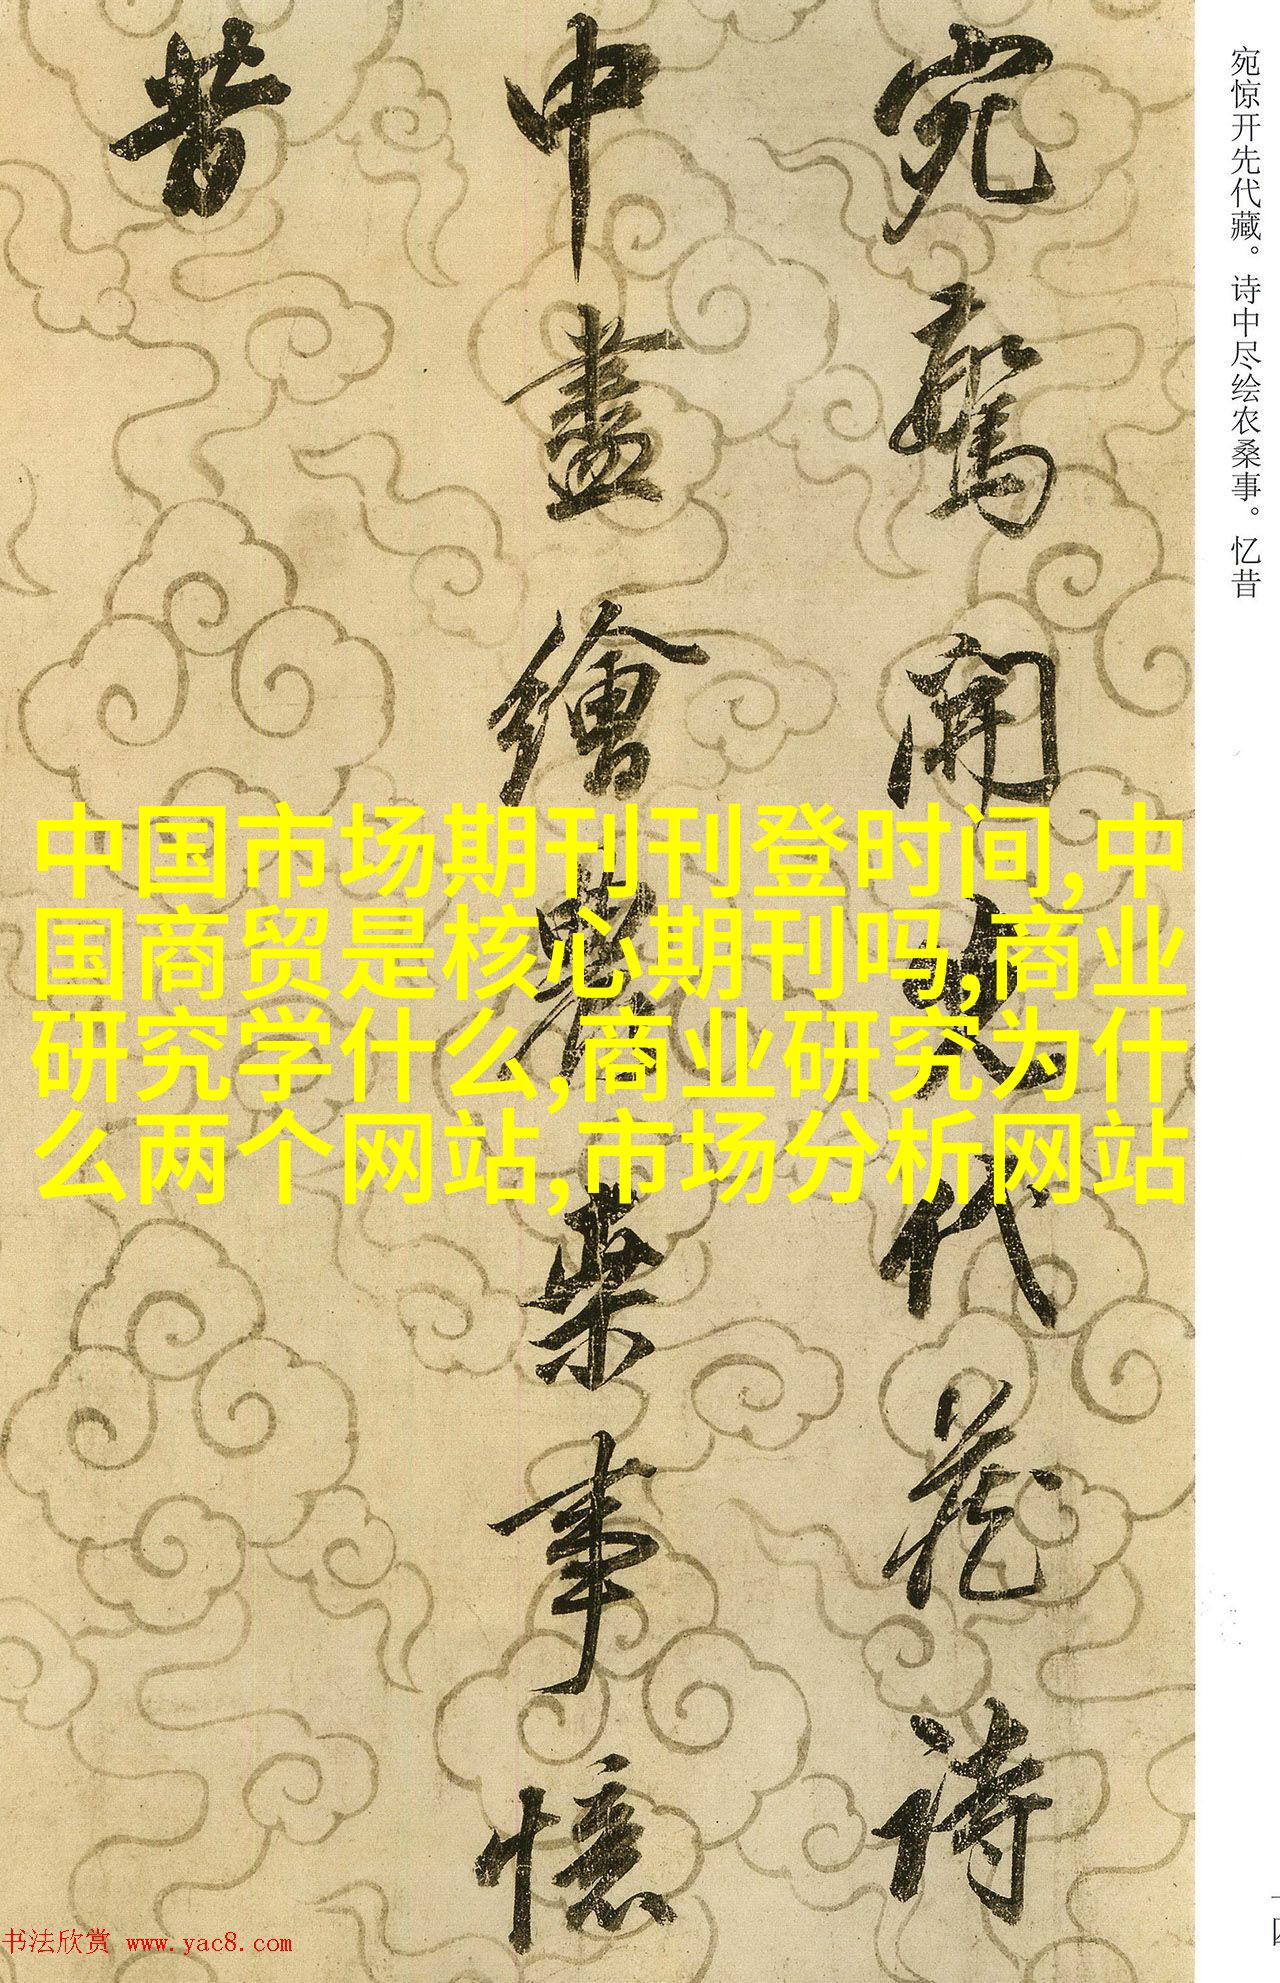 宛惊开先代藏。诗中尽绘农桑事。忆昔
宛驚開先代藏詩
中盡繪農桒事憶
昔
中国市场期刊刊登时间,中
国商贸是核心期刊吗,商业
研究学什么,商业研究为什
么两个网站,市场分析网站
书法欣赏 www.yac8.com